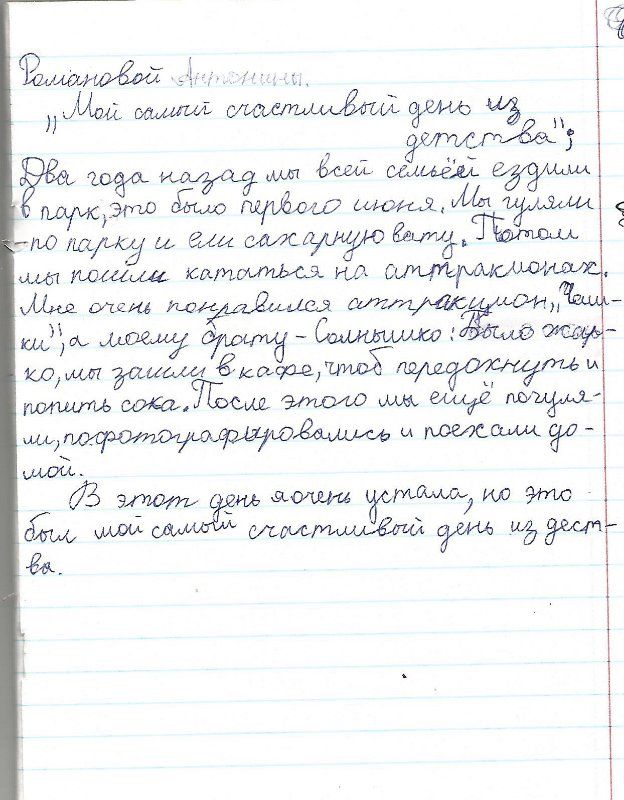 Романовой Антонины.
„Мой самый счастливый день из
детства";
Два года назад мы всей семьёй ездили
в парк, это было первого июня. Мы гуляли
по парку и ели сахарную вату. Потом
мы пошли кататься на аттракионах.
Мне очень понравился аттракцион „Чаш-
ки", а моему брату – Солнышко! Было жар-
ко, мы зашли в кафе, чтоб передохнуть и
попить сока. После этого мы ещё погуля-
ли, пофотографыровались и поехали до-
мой.
В этот день я очень устала, но это
был мой самый счастливый день из дест-
ва.